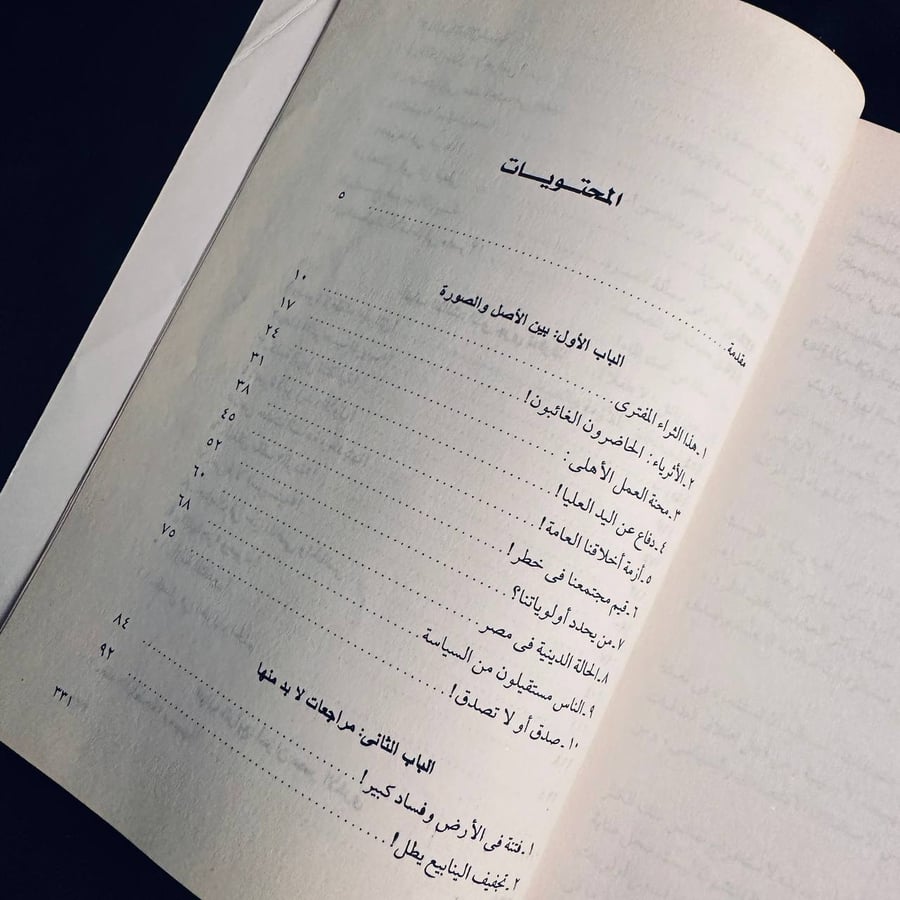 المحتويات
مقدمة ٥
الباب الأول: بين الأصل والصورة
١ـ هذا الثراء المفترى ١٠
٢ـ الأثرياء: الحاضرون الغائبون! ١٧
٣ـ محنة العمل الأهلى: ٢٤
٤ـ دفاع عن اليد العليا! ٣١
٥ـ أزمة أخلاقنا العامة! ٣٨
٦ـ قيم مجتمعنا فى خطر! ٤٥
٧ـ من يحدد أولوياتنا؟ ٥٢
٨ـ الحالة الدينية فى مصر ٦٠
٩ـ الناس مستقيلون من السياسة ٦٨
١٠ـ صدق أو لا تصدق! ٧٥
الباب الثانى: مراجعات لا بد منها
١ـ فتنة فى الأرض وفساد كبير! ٨٤
٢ـ تجفيف الينابيع يطل! ٩٢
٣٣١